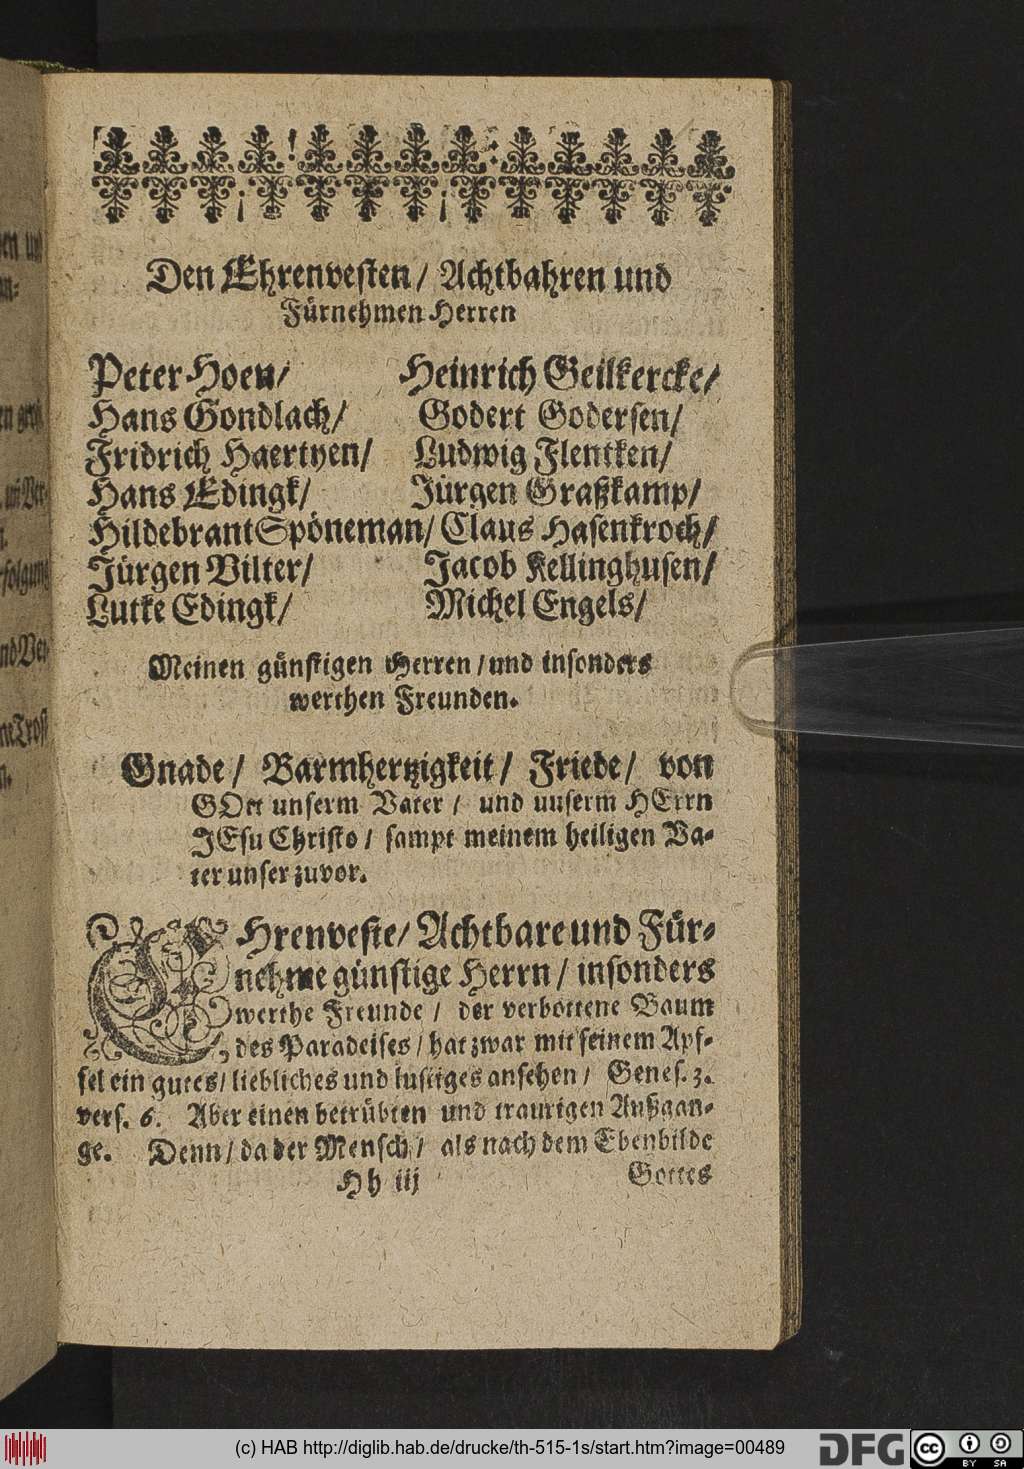 Den Ehrenvesten / Achtbahren und
Fürnehmen Herren
Peter Hoen / Heinrich Geilkercke /
Hans Gondlach / Godert Godersen /
Fridrich Haertyen / Ludwig Flentken /
Hans Edingk / Jürgen Graßkamp /
Hildebrant Spöneman / Claus Hasenkroch /
Jürgen Vilter / Jacob Kellinghusen /
Lutke Edingk / Michel Engels /
Meinen günstigen Herren / und insonders
werthen Freunden.
Gnade / Barmhertzigkeit / Friede / von
GOtt unserm Vater / und unserm HErrn
JEsu Christo / sampt meinem heiligen Va-
ter unser zuvor.
EHrenveste / Achtbare und Für-
nehme günstige Herrn / insonders
werthe Freunde / der verbottene Baum
des Paradeises / hat zwar mit seinem Apf-
fel ein gutes / liebliches und lustiges ansehen / Genes. 3.
vers. 6. Aber einen betrübten und traurigen Außgan-
ge. Denn / da der Mensch / als nach dem Ebenbilde
Hh iij Gottes
(c) HAB http://diglib.hab.de/drucke/th-515-1s/start.htm?image=00489
DFG
cc BY SA